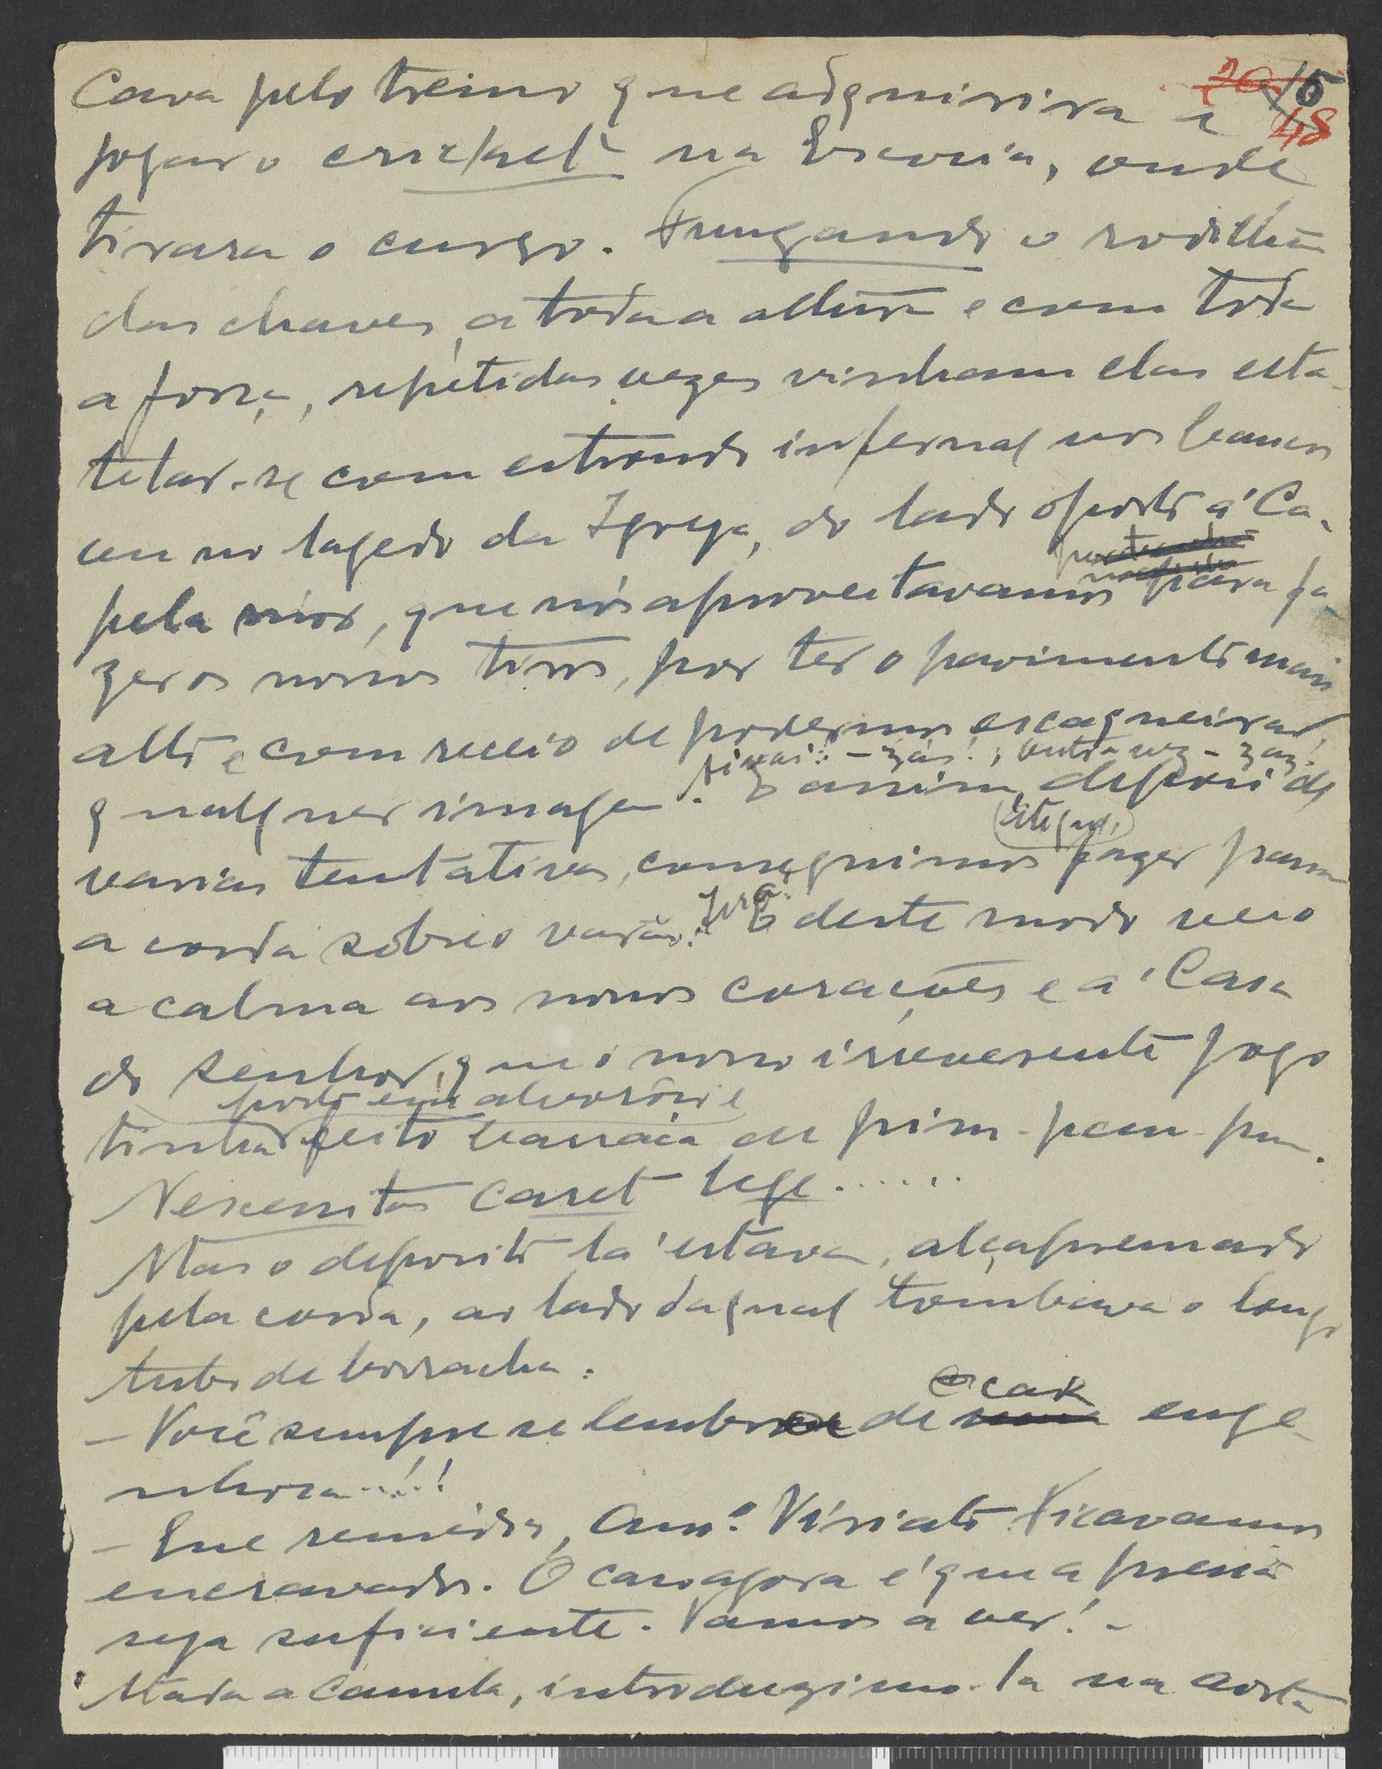 cava pelo treino que adquirira a
48
jogar o crichet na Escocia, onde
tirara o curso. Fungando o rodilhão
das chaves, a toda a altura e com toda
a força, repetidas vezes vinham elas esta-
telar-se com estrondo infernal nos bancos
ou no lagedo da Igreja, do lado oposto á Ca-
pela mór, que nós aproveitavamos para fa-
zer os nossos tiros, por ter o pavimento mais
alto e com receio de podermos escaqueirar
qualquer imagem. E assim, depois de
zás!; outra vez - zaz!
varias tentativas, conseguimos fazer passar
a corda sobre o varão. E deste modo veio
a calma aos nossos corações e á Casa
do Senhor, que o nosso irreverente jogo
posto em alvorôço e
tinha feito barraca de pim-pam-pum.
Nescessitas caret lege......
Mas o deposito lá estava, alçapremado
pela corda, ao lado da qual tombava o longo
tubo de borracha.
- Você sempre se lembra de cada enge-
nhoca...!!
- Que remedio, Amo. Viriato. Ficavamos
encravados. O caso agora é que a pressão
seja suficiente. Vamos a ver! -
Atada a canula, introduzimo-la na aorta